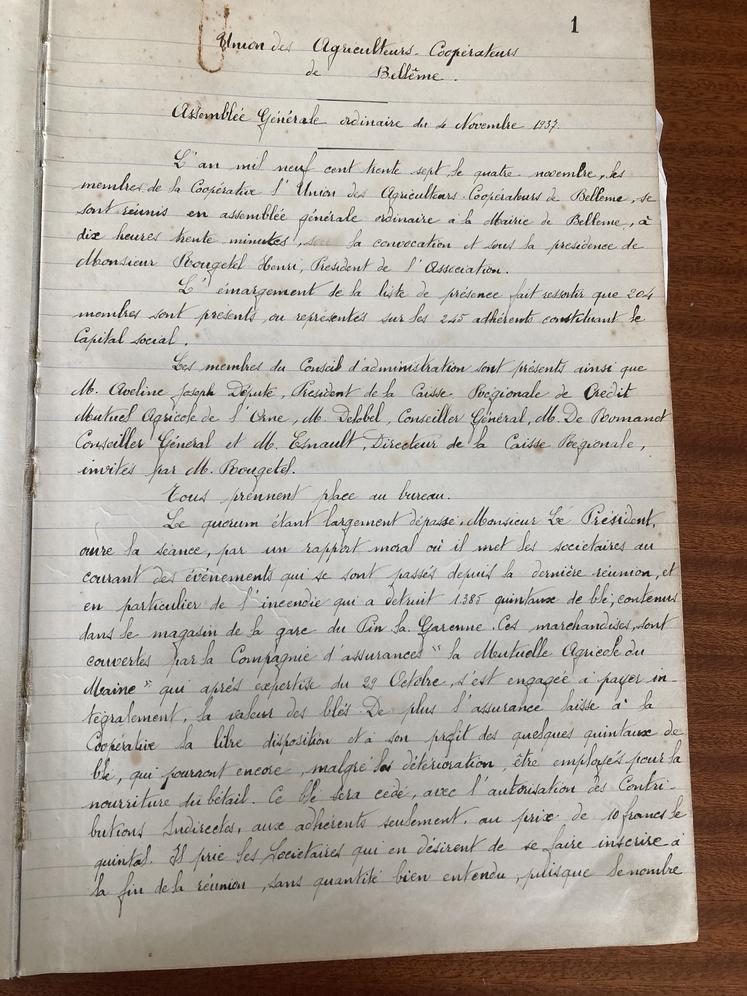 1
Union des Agriculteurs-Coopérateurs
de Bellême.
Assemblée Générale ordinaire du 4 Novembre 1937.
L'an mil neuf cent trente sept, le quatre novembre, les
membres de la Coopérative l'Union des Agriculteurs-Coopérateurs de Bellême, se
sont réunis en assemblée générale ordinaire à la Mairie de Bellême, à
dix heures trente minutes, la convocation et sous la présidence de
Monsieur Rougetel Henri, Président de l'Association.
L'émargement de la liste de présence fait ressortir que 204
membres sont présents ou représentés sur les 245 adhérents constituant le
Capital social.
Les membres du Conseil d'administration sont présents ainsi que
M. Aveline Joseph Député, Président de la Caisse Régionale de Crédit
Mutuel Agricole de l'Orne, M. Delobel, Conseiller Général, M. De Romanet
Conseiller Général et M. Esnault, Directeur de la Caisse Régionale,
invités par M. Rougetel.
Tous prennent place au bureau.
Le quorum étant largement dépassé, Monsieur Le Président,
ouvre la séance, par un rapport moral où il met les sociétaires au
courant des événements qui se sont passés depuis la dernière réunion, et
en particulier de l'incendie qui a détruit 1.385 quintaux de blé, contenus
dans le magasin de la gare du Pin la Garenne. Ces marchandises, sont
couvertes par la Compagnie d'assurances "la Mutuelle Agricole du
Maine" qui après expertise du 29 Octobre, s'est engagée à payer in-
tégralement, la valeur des blés. De plus l'assurance laisse à la
Coopérative la libre disposition et à son profit des quelques quintaux de
blé, qui pourront encore, malgré la détérioration, être employés pour la
nourriture du bétail. Ce blé sera cédé, avec l'autorisation des Contri-
butions Indirectes, aux adhérents seulement, au prix de 10 francs le
quintal. Il prie les Sociétaires qui en désirent de se faire inscrire à
la fin de la réunion, sans quantité bien entendu, puisque le nombre